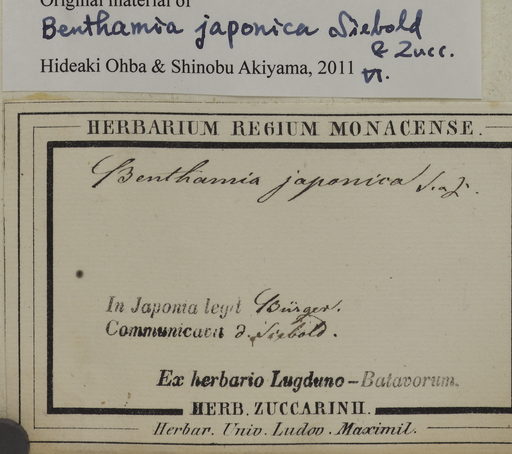 Original material of
Benthamia japonica Siebold
& Zucc.
Hideaki Ohba & Shinobu Akiyama, 2011
VI.
HERBARIUM REGIUM MONACENSE.
Benthamia japonica S. a Z.
In Japonia legit Bürger.
Communicavit d. Siebold.
Ex herbario Lugduno-Batavorum.
HERB. ZUCCARINII.
Herbar. Univ. Ludov. Maximil.